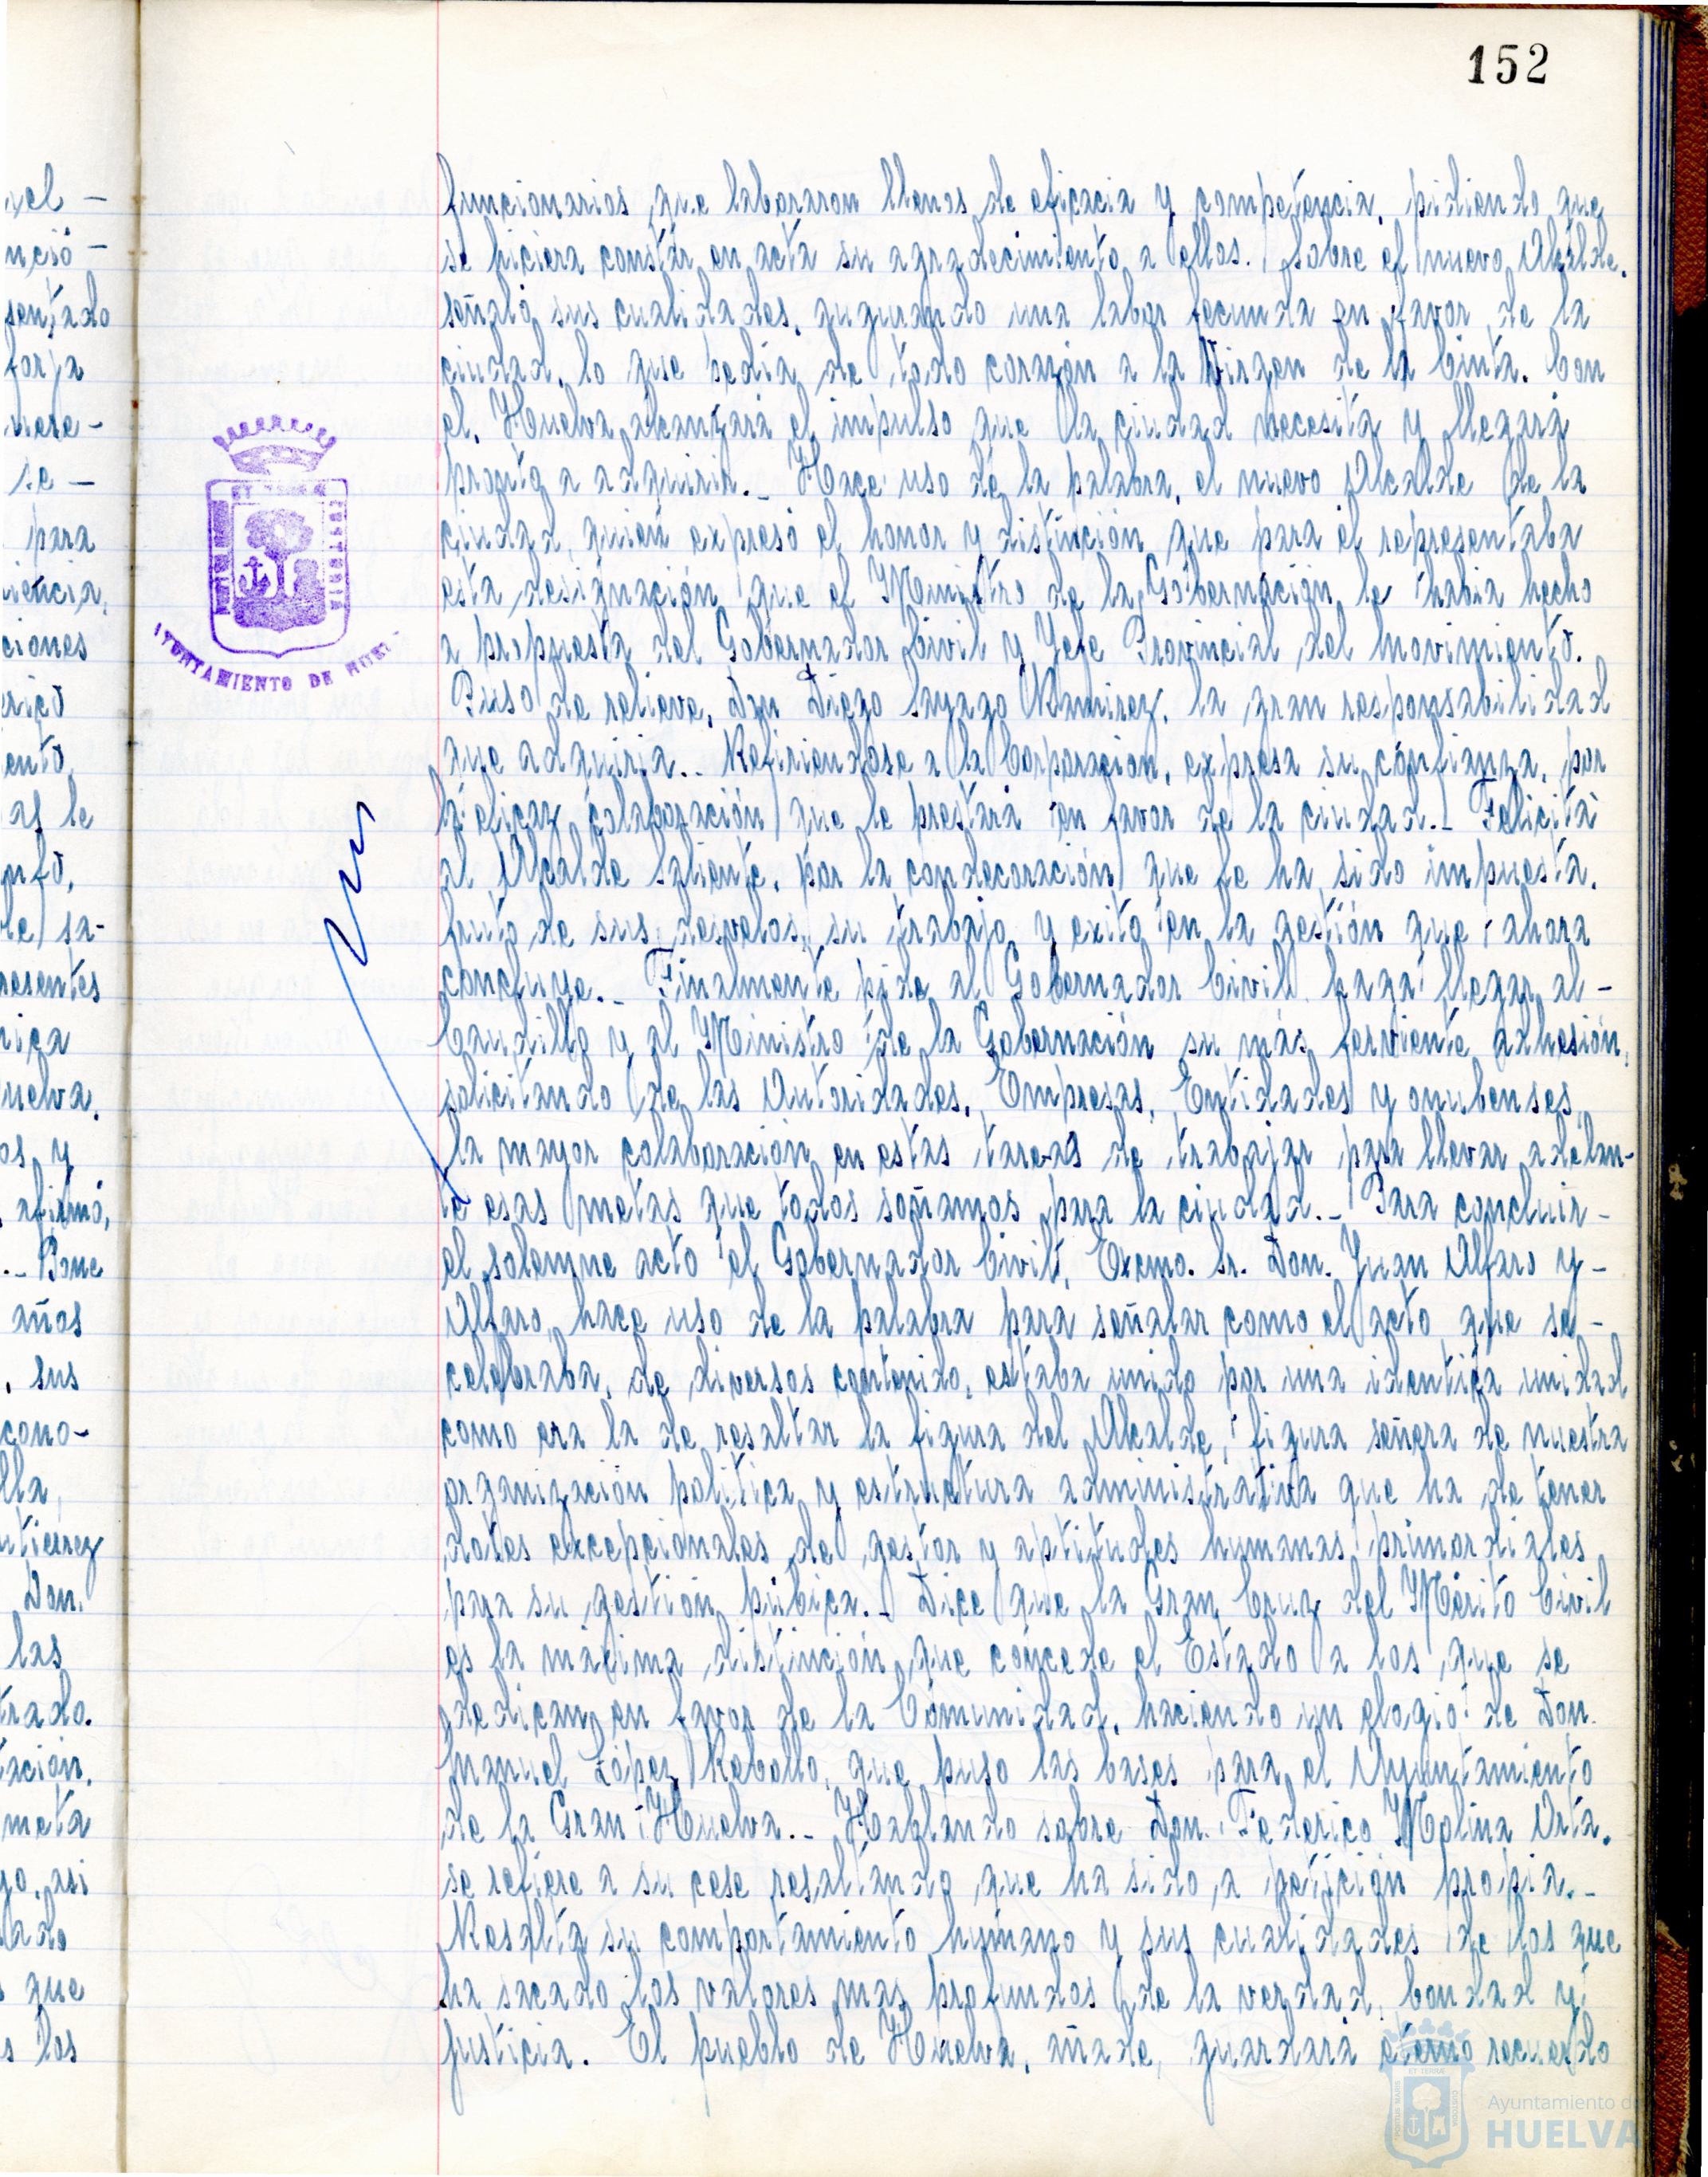 152
funcionarios que laboraron llenos de eficacia y competencia, pidiendo que
se hiciera constar en acta su agradecimiento a ellos. Sobre el nuevo Alcalde,
señaló sus cualidades, augurando una labor fecunda en favor de la
ciudad, lo que pedia de todo corazón a la Virgen de la Cinta. Con
el, Huelva alcanzará el impulso que la ciudad necesita y llegará
pronto a adquirir.- Hace uso de la palabra, el nuevo Alcalde de la
ciudad, quien expresó el honor y distinción que para él representaba
esta designación que el Ministro de la Gobernación le habia hecho
a propuesta del Gobernador Civil y Jefe Provincial del Movimiento.
Puso de relieve, Don Diego Sayago Ramirez, la gran responsabilidad
que adquiria.- Refiriendose a la Corporacion, expresa su confianza, por
la eficaz colaboración que le prestará en favor de la ciudad.- Felicita
al Alcalde saliente, por la condecoración que le ha sido impuesta,
fruto de sus desvelos, su trabajo y exito en la gestión que ahora
concluye.- Finalmente pide al Gobernador Civil haga llegar al-
Caudillo y al Ministro de la Gobernación su más ferviente adhesión,
solicitando de las Autoridades, Empresas, Entidades y onubenses,
la mayor colaboración en estas tareas de trabajar para llevar adelan-
te esas metas que todos soñamos para la ciudad.- Para concluir-
el solemne acto el Gobernador Civil, Excmo. Sr. Don. Juan Alfaro y-
Alfaro, hace uso de la palabra para señalar como el acto que se-
celebraba, de diversos contenido, estaba unido por una identica unidad
como era la de resaltar la figura del Alcalde, figura señera de nuestra
organización politica y estructura administrativa que ha de tener
dotes excepcionales de gestor y aptitudes humanas primordiales
para su gestión púbica.- Dice que la Gran Cruz del Mérito Civil
es la máxima distinción que concede el Estado a los que se
dedican en favor de la Comunidad, haciendo un elogio de Don.
Manuel López Rebollo, que puso las bases para el Ayuntamiento
de la Gran Huelva.- Hablando sobre Don. Federico Molina Orta,
se refiere a su cese resaltando que ha sido a petición propia.-
Resalta su comportamiento humano y sus cualidades de los que
ha sacado los valores mas profundos de la verdad, bondad y
justicia. El pueblo de Huelva, añade, guardará eterno recuerdo
nció-
sentado
forja
mere-
se-
para
ciones
ento,
al le
resentes
os y
afirmó,
.- Pone
años
, sus
cono-
Don.
las
trado.
tación,
meta
que
los
AYUNTAMIENTO DE
Ayuntamiento de
HUELVA